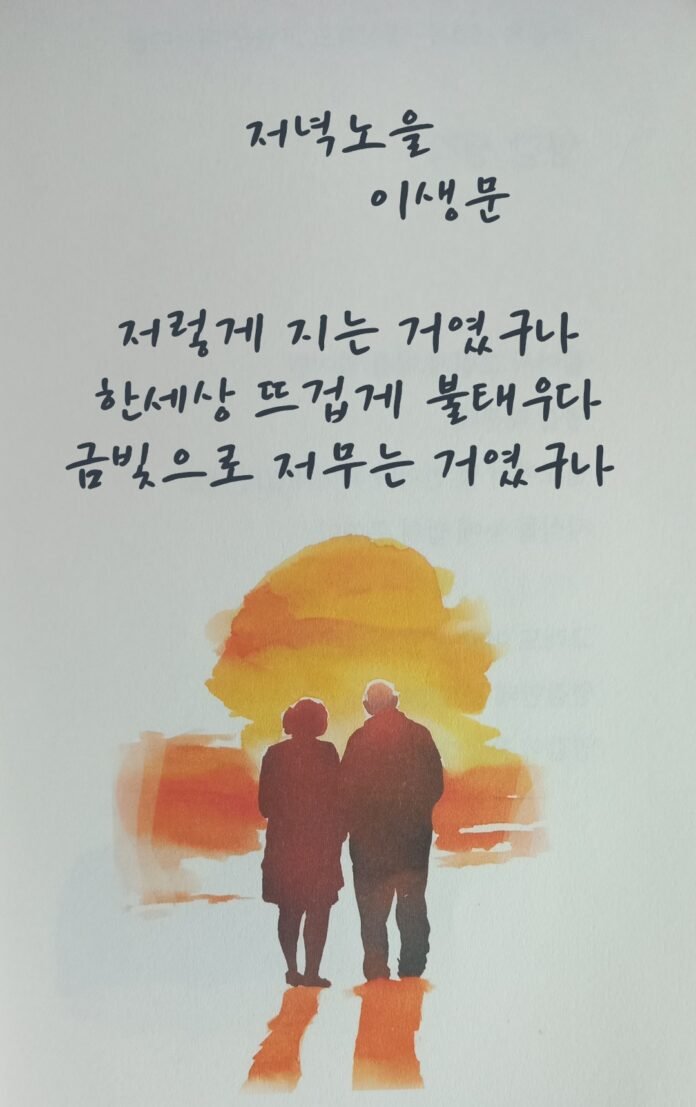 저녁노을
이생문
저렇게 지는 거였구나
한세상 뜨겁게 불태우다
금빛으로 저무는 거였구나